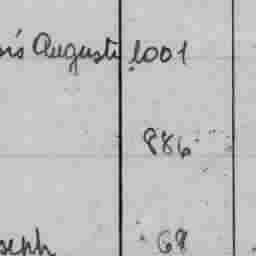 is Augusti 1001
886
seph 68